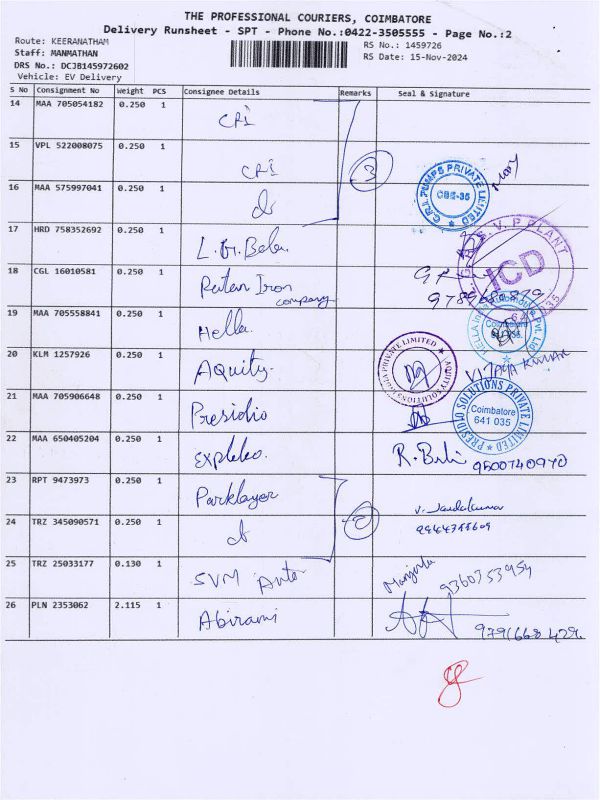 THE PROFESSIONAL COURIERS, COIMBATORE
Delivery Runsheet - SPT - Phone No.:0422-3505555 - Page No.:2
Route: KEERANATHAM
RS No.: 1459726
Staff: MANMATHAN
RS Date: 15-Nov-2024
DRS No.: DCJB145972602
Vehicle: EV Delivery
S No Consignment No Weight PCS Consignee Details Remarks Seal & Signature
14 MAA 705054182 0.250 1 CRI
15 VPL 522008075 0.250 1 CRI 3
16 MAA 575997041 0.250 1 C.R.I. PUMPS PRIVATE LIMITED CBE-35
17 HRD 758352692 0.250 1 S.V.P PLANT ICD
18 CGL 16010581 0.250 1 Ratan Iron company
19 MAA 705558841 0.250 1 Hella Coimbatore
20 KLM 1257926 0.250 1 Aquity AQUITY SOLUTIONS INDIA PRIVATE LIMITED VIJAYA KUMAR
21 MAA 705906648 0.250 1 Presidio PRESIDIO SOLUTIONS PRIVATE LIMITED Coimbatore 641 035
22 MAA 650405204 0.250 1 Expleo. 9500740970
23 RPT 9473973 0.250 1 Parklayer
24 TRZ 345090571 0.250 1 2
25 TRZ 25033177 0.130 1 SVM Auto Manjula 9360353954
26 PLN 2353062 2.115 1 Abirami 9791668429.